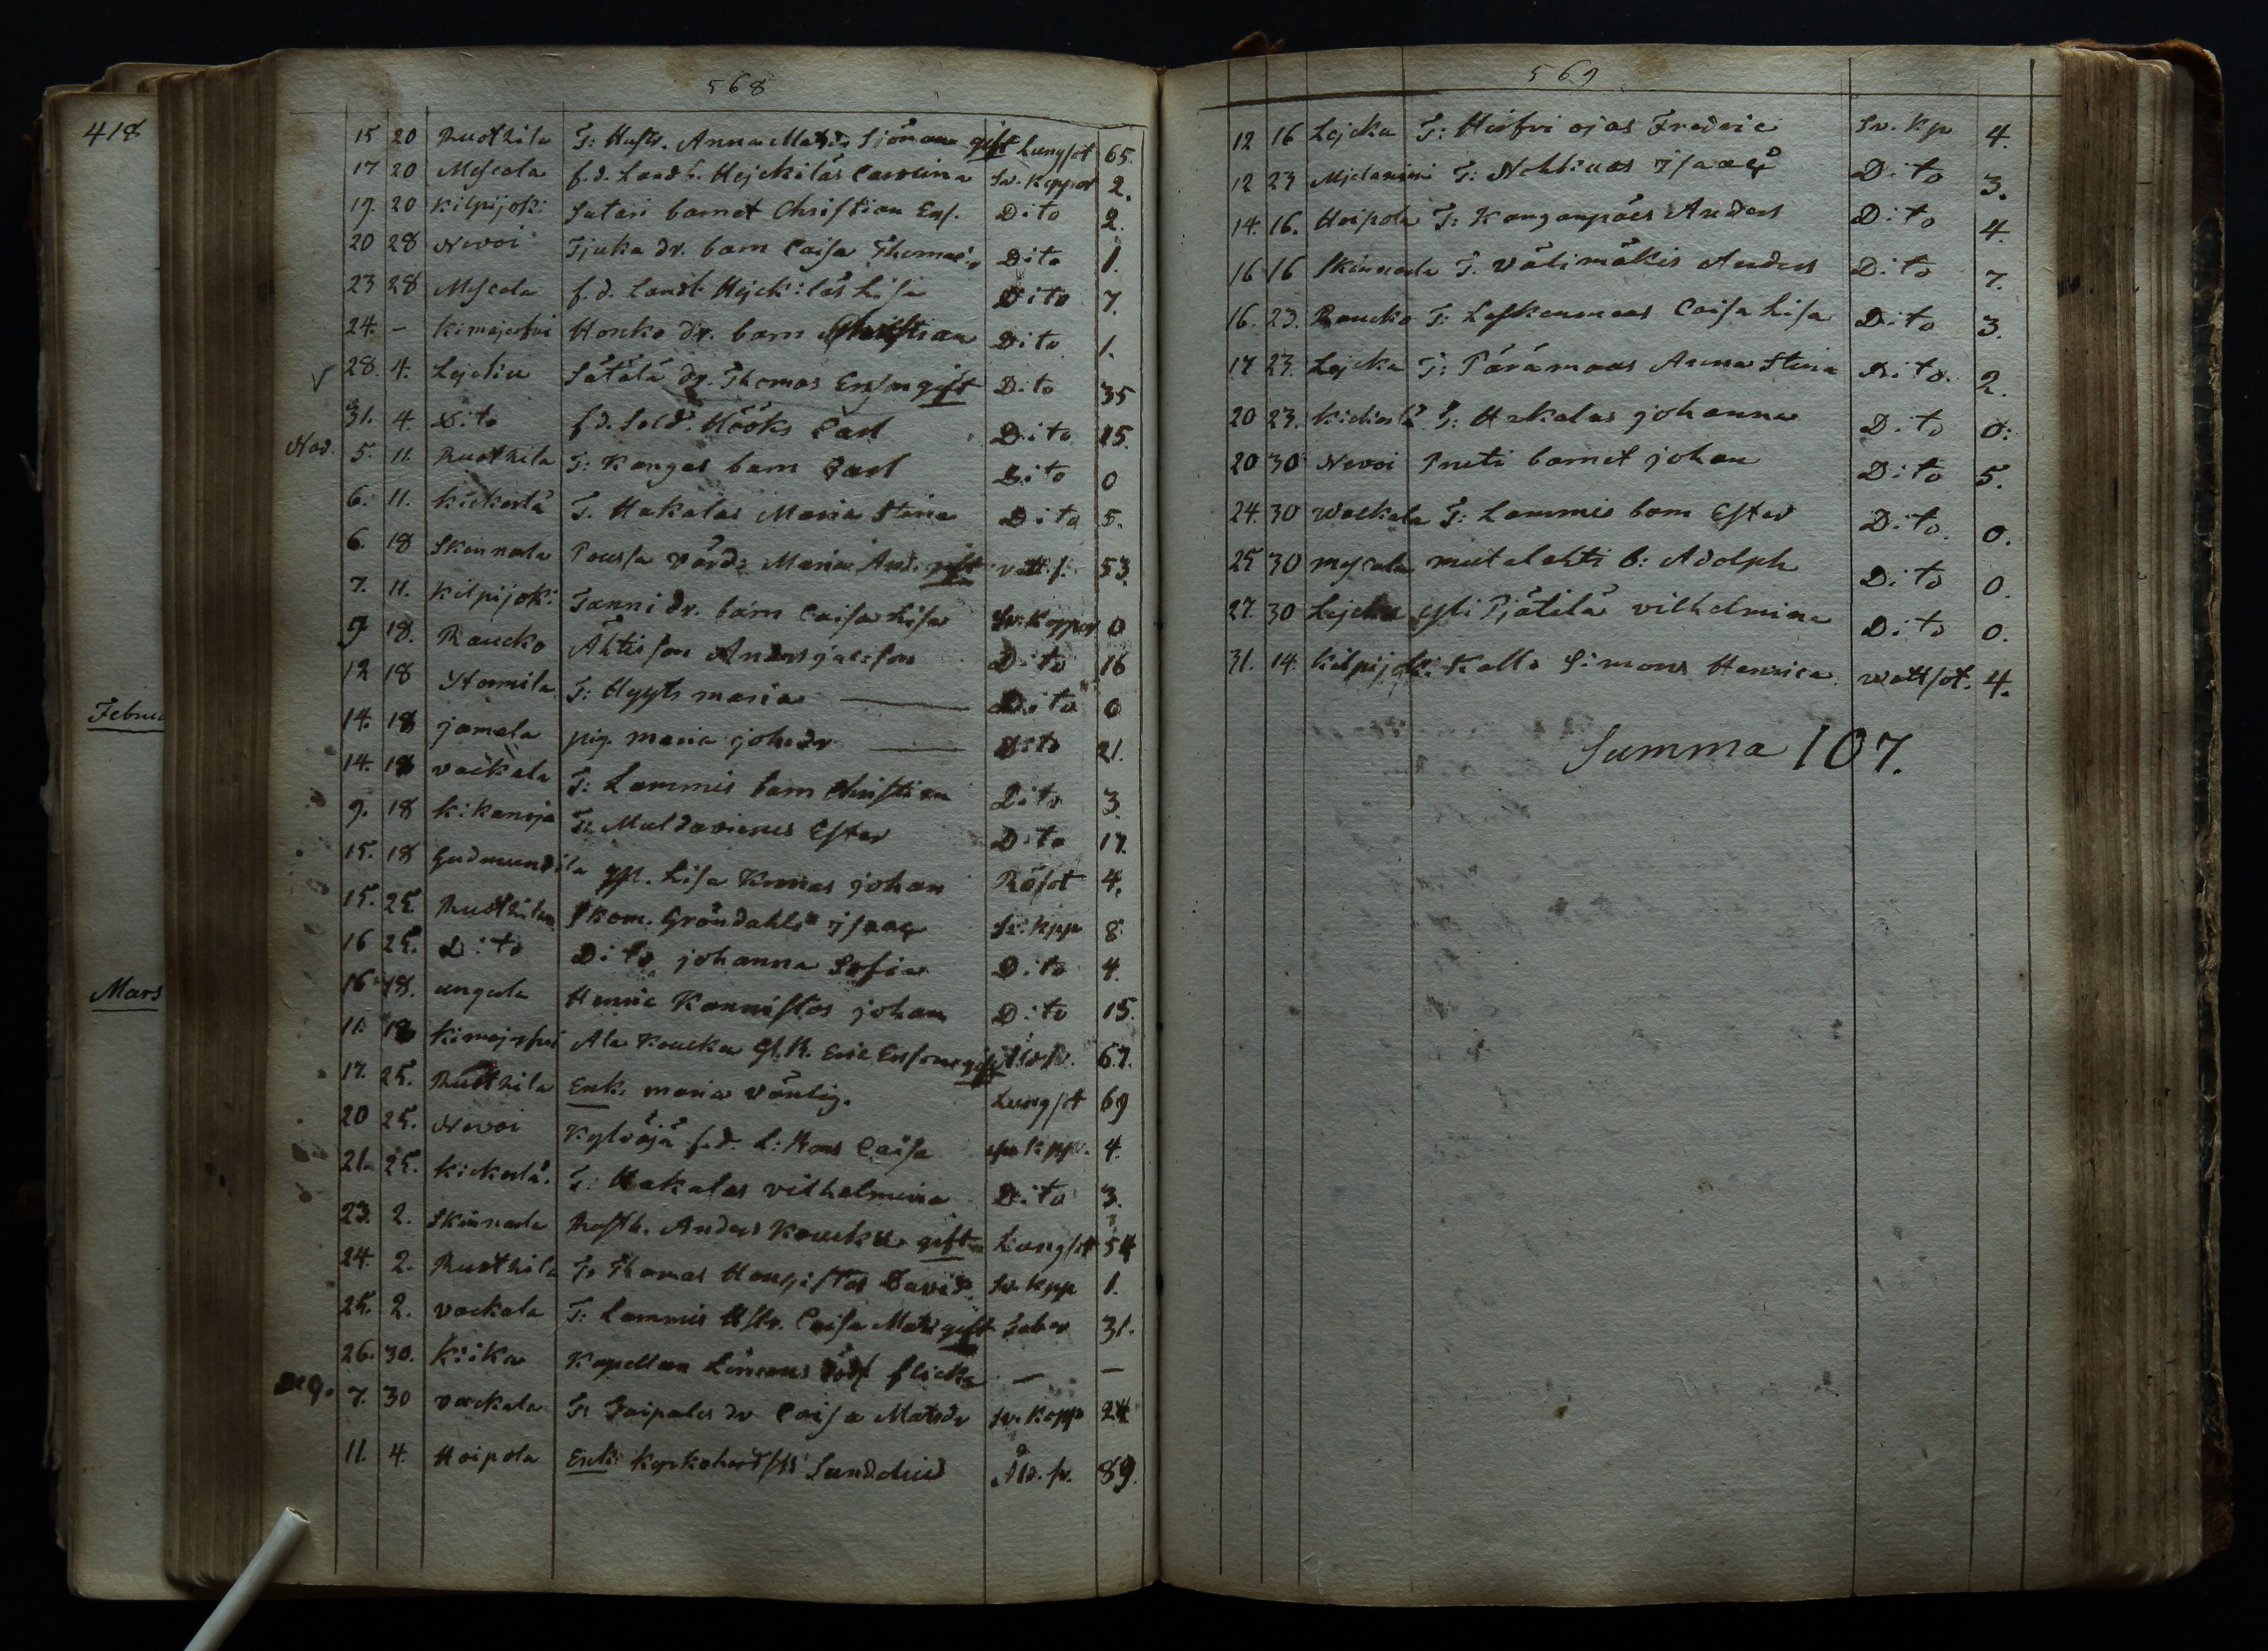 418
Februa
Mars
568
15 20 Rusthila T: Hustr. Anna Matsdr Sjöman gift Lungsot 65.
17 20 Mescala f.d. Landb. Hejckiläs Carolina Sv. Koppor 2.
19. 20 Kilpijoki Satari barnet Christian Ers. Dito 2.
20 28 Nevoi Tjuka dr. barn Caisa Thomasdr Dito 1.
23 28 Mescala f.d. Landb. Hejckiläs Lisa Dito 7.
24. – Kimejerfvi Honko dr. barn Christian Dito 1.
28. 4. Lejcku Sätälä dr. Thomas Ersson gift Dito 35
31. 4. Dito f.d. Sold. Hööks Carl Dito 15.
Nov. 5. 11. Rusthila T: Kangas barn Carl Dito 0
6. 11. Kickerlä T. Hakalas Maria Stina Dito 5.
6. 18 Skinnala Poussa värd: Maria And. gift vatts. 53.
7. 11. Kilpijoki Tanni dr. barn Caisa Lisa Sv. Koppor 0
9 18. Raucko Ähtis son Anders jacosson Dito 16
12 18 Yttermila T: Uggts maria Dito 0
14. 18 jamala pig. maria johsdr Dito 21.
14. 18 vackala T: Lammis barn Christian Dito 3.
9. 18 Kikanoja T: Muldavienes Ester Dito 17.
15. 18 Gudmundila Lisa Krenas johan Rösot 4.
15. 25. Rusthila Skom. Gröndahls jsaac Sv: Kpp 8
16 25. Dito Dito johanna Sofia Dito 4.
16 18. ungula Henric Kannistos johan Dito 15.
11. 18 Kimejerfvi Ala Koucka Eric Ersson gift 67.
17. 25. Rusthila Enk. maria Vänlig. Lungsot 69
20 25. Nevoi Kylväjä f.d. L: Caisa Sv Kppr. 4.
21. 25. Kickerlä. T: Hakalas vilhelmina Dito 3.
23. 2. Skinnala Rusth. Anders Koucku gift Lungsot 54
24. 2. Rusthila T: Thomas Hongistos David Sv. Kpp 1.
25. 2. vackala T: Lammis Hstr. Caisa Mats gift Feber 31.
26. 30. Kiika Kapellan Lincens död flicka – –
Dec. 7. 30 vackala T: Jaipales dr Caisa Matsdr Sv. Kopp 24
11. 4. Hoipola Enk: Kyrkoherdskt Sundelius Åld. sv. 89.
569
12 16 Lejcku T: Hirfvi ojas Fredric Sv. Kp 4.
12 23 T: Nohkuas jsaac Dito 3.
14. 16. Hoipola T: Kanganpäes Anders Dito 4.
16 16 Skinnala T. Välimäkis Anders Dito 7.
16. 23. Raucko T: Leskenmaas Caisa Lisa Dito 3.
17 23. Lejcku T: Päramaas Anna Stina Dito. 2.
20 23. Kickerlä T: Hakalas johanna Dito 0:
20 30 Nevoi Pneti barnet johan Dito 5.
24. 30 Wackala T: Lammis barn Ester Dito. 0.
25 30 mescala mutalahti b: Adolph Dito 0.
27. 30 Lejcku Pjätilä vilhelmina Dito 0.
31. 14. Kilpijoki Kalls Simons Henrica. wattsot. 4.
Summa 107.